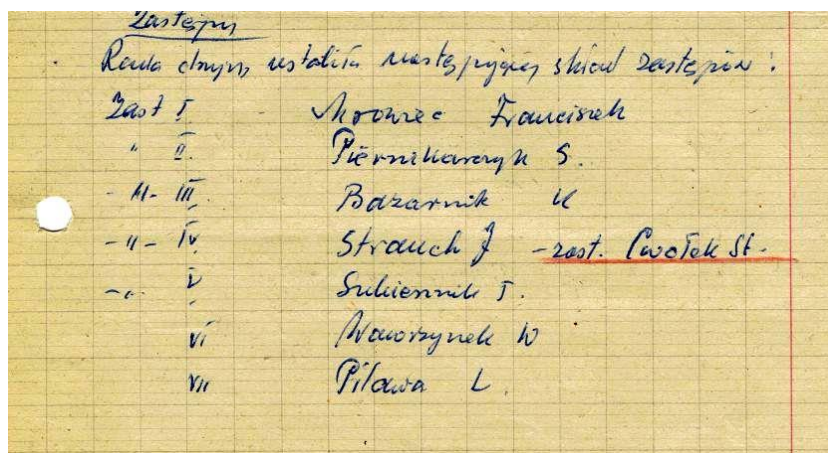 Zastępy
Rada drużyny ustaliła następujący skład zastępów:
Zast I. Mrowiec Franciszek
" II. Piernikarczyk S.
-"- III. Bazarnik K
-"- IV. Strauch J - zast. Cwołek St.
-"- V. Sukiennik T.
VI Wawrzynek W
VII Pilawa L.